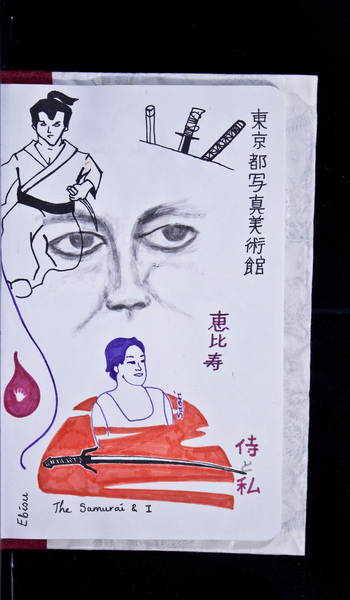 東京都写真美術館
恵比寿
侍と私
Ebisu
The Samurai & I